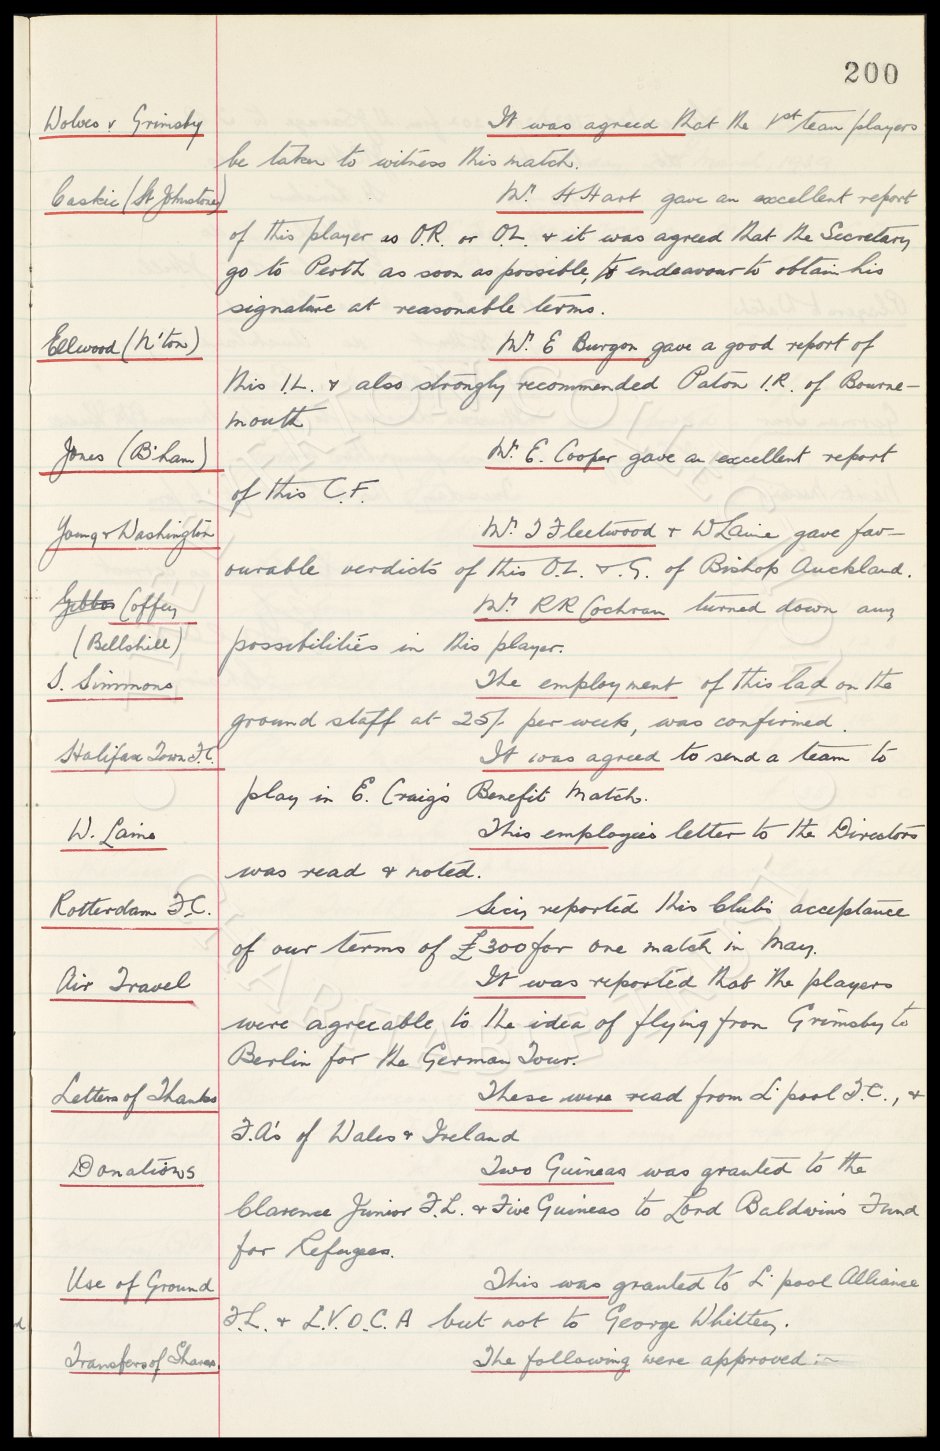 200
Wolves & Grimsby It was agreed that the 1st team players
be taken to witness this match.
Caskie (St Johnstone) Mr. H Hart gave an excellent report
of this player as O.R. or O.L. & it was agreed that the Secretary
go to Perth as soon as possible, to endeavour to obtain his
signature at reasonable terms.
Ellwood (N'ton) Mr. E Burgon gave a good report of
this I.L. & also strongly recommended Paton I.R. of Bourne-
mouth
Jones (B'ham) Mr. E. Cooper gave an excellent report
of this C.F.
Young & Washington Mr J Fleetwood & W Laine gave fav-
ourable verdicts of this O.L. & G. of Bishop Auckland.
Gibbs Coffey Mr. RR Cochran turned down any
(Bellshill) possibilities in this player.
S. Simmons The employment of this lad on the
ground staff at 25/- per week, was confirmed.
Halifax Town F.C. It was agreed to send a team to
play in E. Craig's Benefit Match.
W. Laine This employee's letter to the Directors
was read & noted.
Rotterdam F.C. Secy reported this Club's acceptance
of our terms of £300 for one match in May.
Air Travel It was reported that the players
were agreeable to the idea of flying from Grimsby to
Berlin for the German Tour.
Letters of Thanks These were read from L'pool F.C., &
F.A's of Wales & Ireland
Donations Two Guineas was granted to the
Clarence Junior F.L. & Five Guineas to Lord Baldwin's Fund
for Refugees.
Use of Ground This was granted to L'pool Alliance
F.L. & L.V.O.C.A but not to George Whitten.
Transfers of Shares The following were approved:-